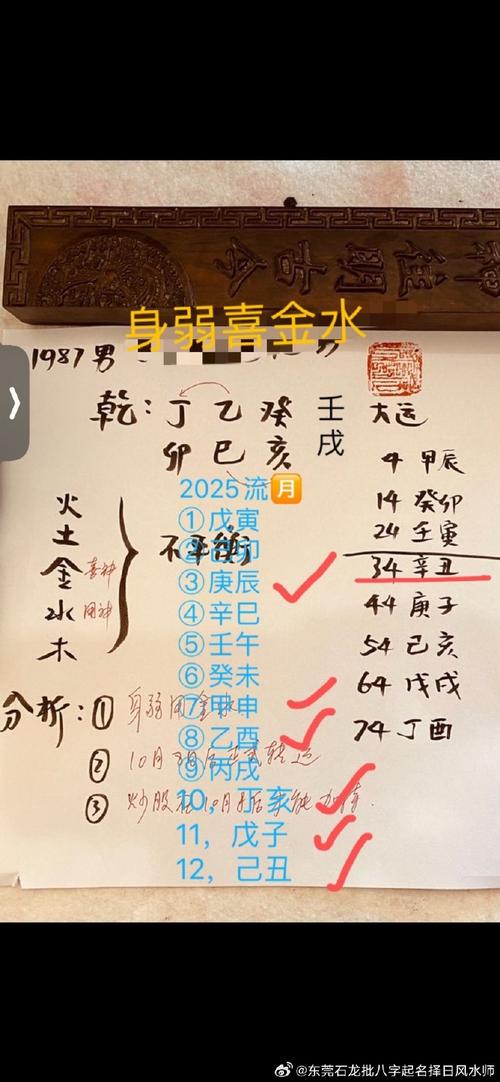 神往明古今
身弱喜金水
1987男
乾：丁 乙 癸 壬 大运
卯 巳 亥 戌
4 甲辰
14 癸卯
24 壬寅
34 辛丑
44 庚子
54 己亥
64 戊戌
74 丁酉
火
土
金 喜神
水 用神
木
不平衡
2025流月
①戊寅
②己卯
③庚辰
④辛巳
⑤壬午
⑥癸未
⑦甲申
⑧乙酉
⑨丙戌
10，丁亥
11，戊子
12，己丑
分析：① 身弱用金水
② 10月
③ 炒股
@东莞石龙批八字起名择日风水师